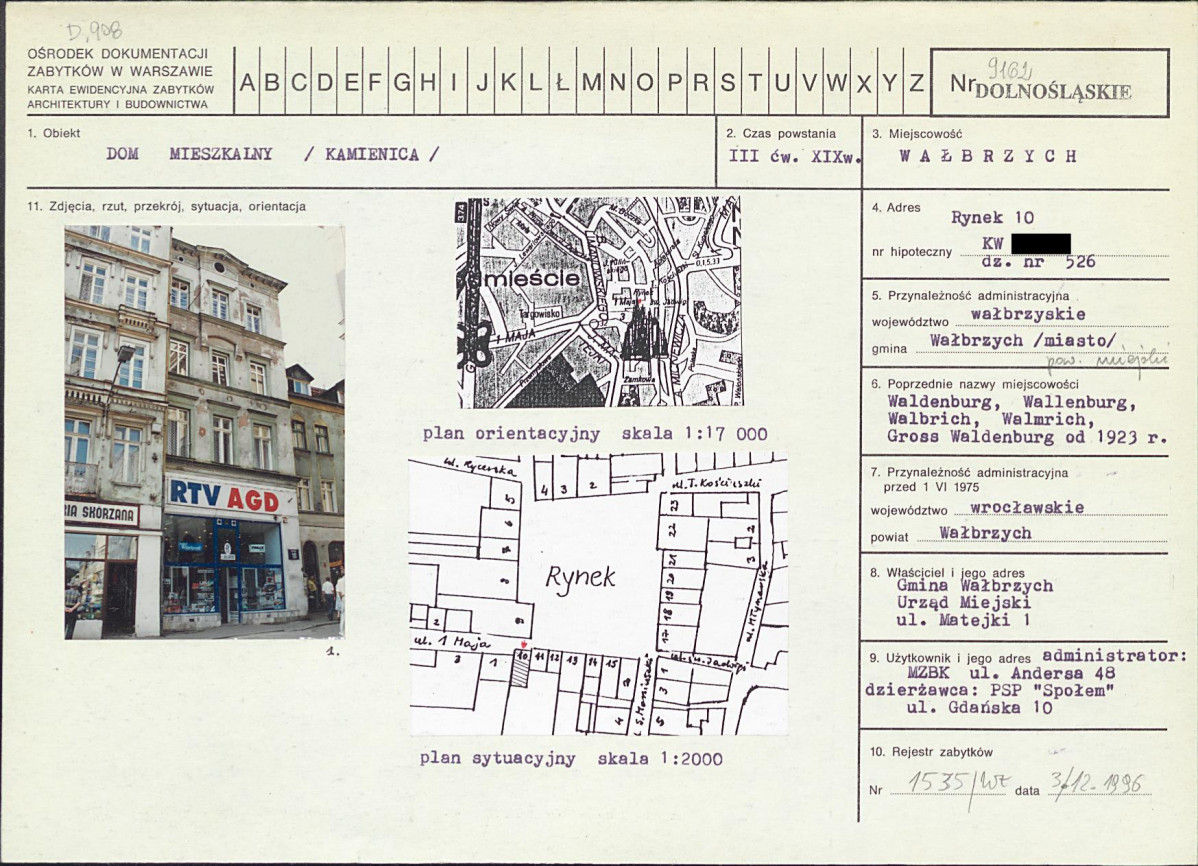 D,908
OŚRODEK DOKUMENTACJI
ZABYTKÓW W WARSZAWIE
KARTA EWIDENCYJNA ZABYTKÓW
ARCHITEKTURY I BUDOWNICTWA
A B C D E F G H I J K L Ł M N O P R S T U V W X Y Z
Nr 9162
DOLNOŚLĄSKIE
1. Obiekt
DOM MIESZKALNY / KAMIENICA /
2. Czas powstania
III ćw. XIXw.
3. Miejscowość
WAŁBRZYCH
11. Zdjęcia, rzut, przekrój, sytuacja, orientacja
RTV AGD
SKÓRZANA
1.
mieście
Targowisko
1 MAJA
Rynek
Zamkowa
plan orientacyjny skala 1:17 000
ul. Rycerska
4 3 2
ul. T. Kościuszki
5
6
7
8
23
22
21
20
19
18
17
2
3
Rynek
ul. Młynarska
2
ul. 1 Maja
3
1
10 11 12 13 14 15
ul. św. Jadwigi
1
3
4
5
plan sytuacyjny skala 1:2000
4. Adres
Rynek 10
nr hipoteczny KW
dz. nr 526
5. Przynależność administracyjna
województwo wałbrzyskie
gmina Wałbrzych /miasto/
pow. miejski
6. Poprzednie nazwy miejscowości
Waldenburg, Wallenburg,
Walbrich, Walmrich,
Gross Waldenburg od 1923 r.
7. Przynależność administracyjna
przed 1 VI 1975
województwo wrocławskie
powiat Wałbrzych
8. Właściciel i jego adres
Gmina Wałbrzych
Urząd Miejski
ul. Matejki 1
9. Użytkownik i jego adres administrator:
MZBK ul. Andersa 48
dzierżawca: PSP "Społem"
ul. Gdańska 10
10. Rejestr zabytków
Nr 1535/WŁ data 3/12-1996